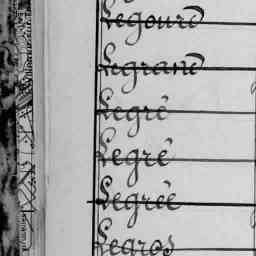 Legourd
Legrand
Legré
Legré
Legrée
Legros